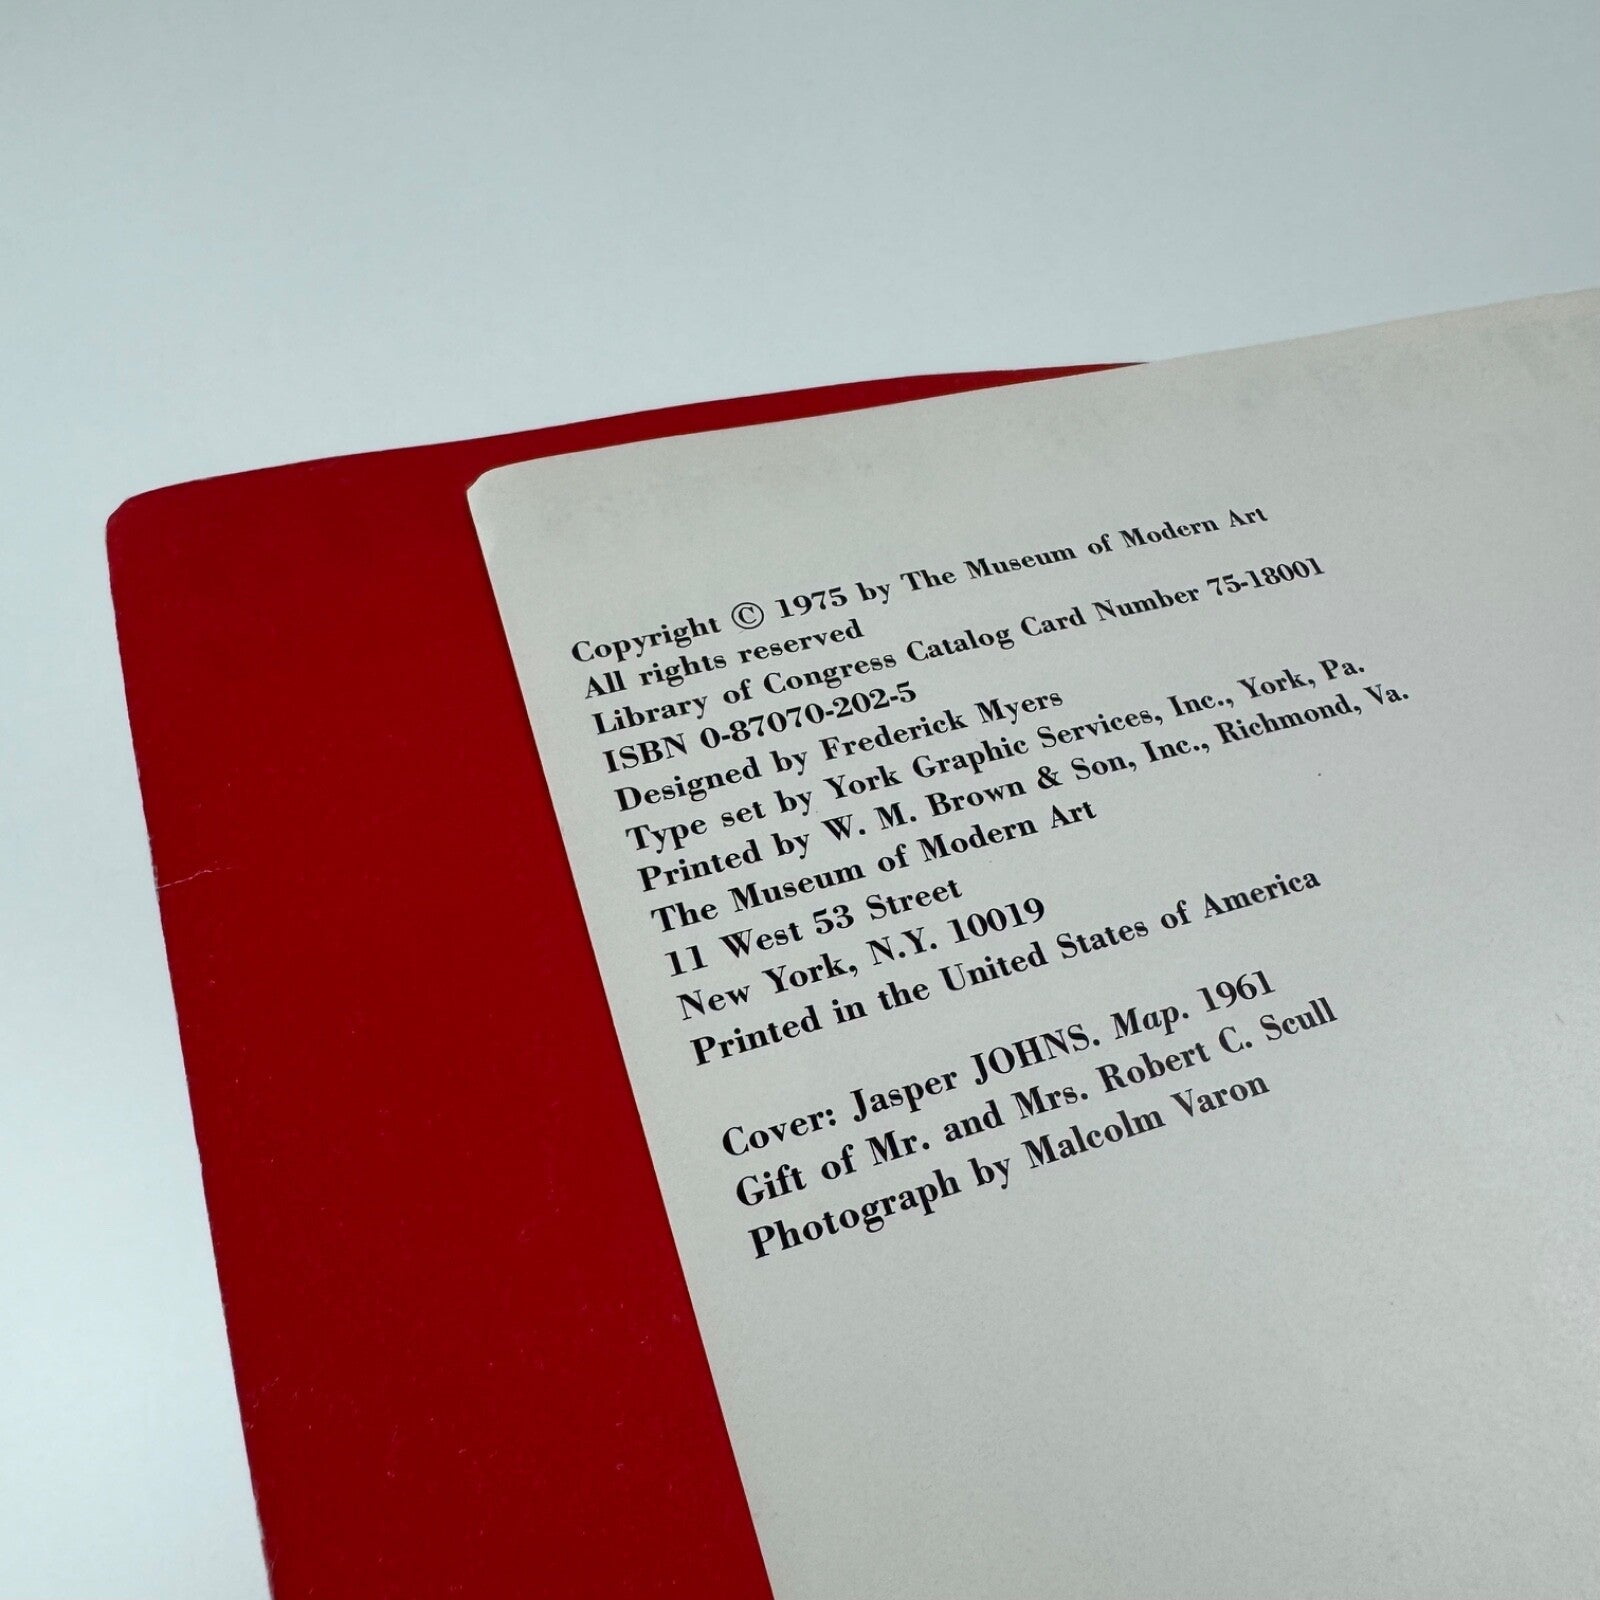 Copyright © 1975 by The Museum of Modern Art
All rights reserved
Library of Congress Catalog Card Number 75-18001
ISBN 0-87070-202-5
Designed by Frederick Myers
Type set by York Graphic Services, Inc., York, Pa.
Printed by W. M. Brown & Son, Inc., Richmond, Va.
The Museum of Modern Art
11 West 53 Street
New York, N.Y. 10019
Printed in the United States of America
Cover: Jasper JOHNS. Map. 1961
Gift of Mr. and Mrs. Robert C. Scull
Photograph by Malcolm Varon